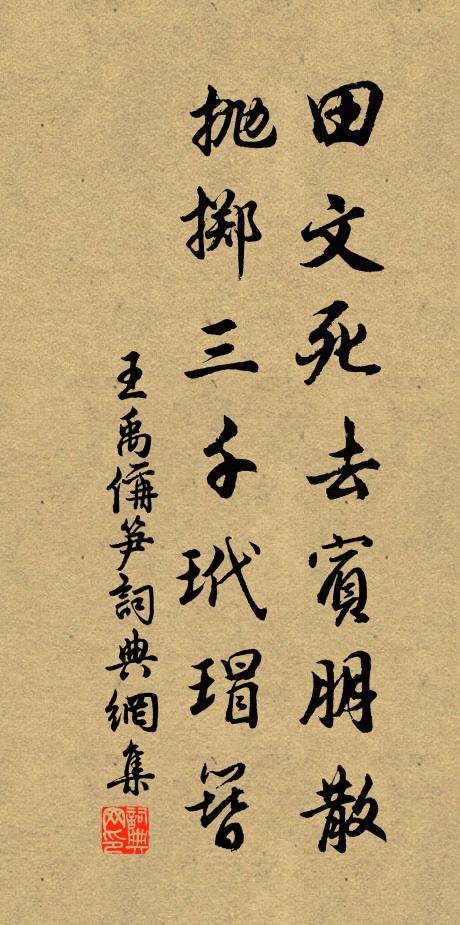 田文死去賓朋散
抛擲三千玳瑁簪
王禹偁笋詞典網集
詞典網印